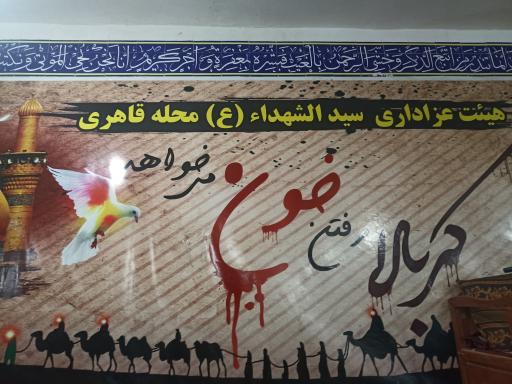 انما تنذر من اتبع الذكر وخشي الرحمن بالغيب فبشره بمغفرة واجر كريم انا نحن نحي الموتى ونكتب
هیئت عزاداری سید الشهداء (ع) محله قاهری
کربلا رفتن خون می خواهد